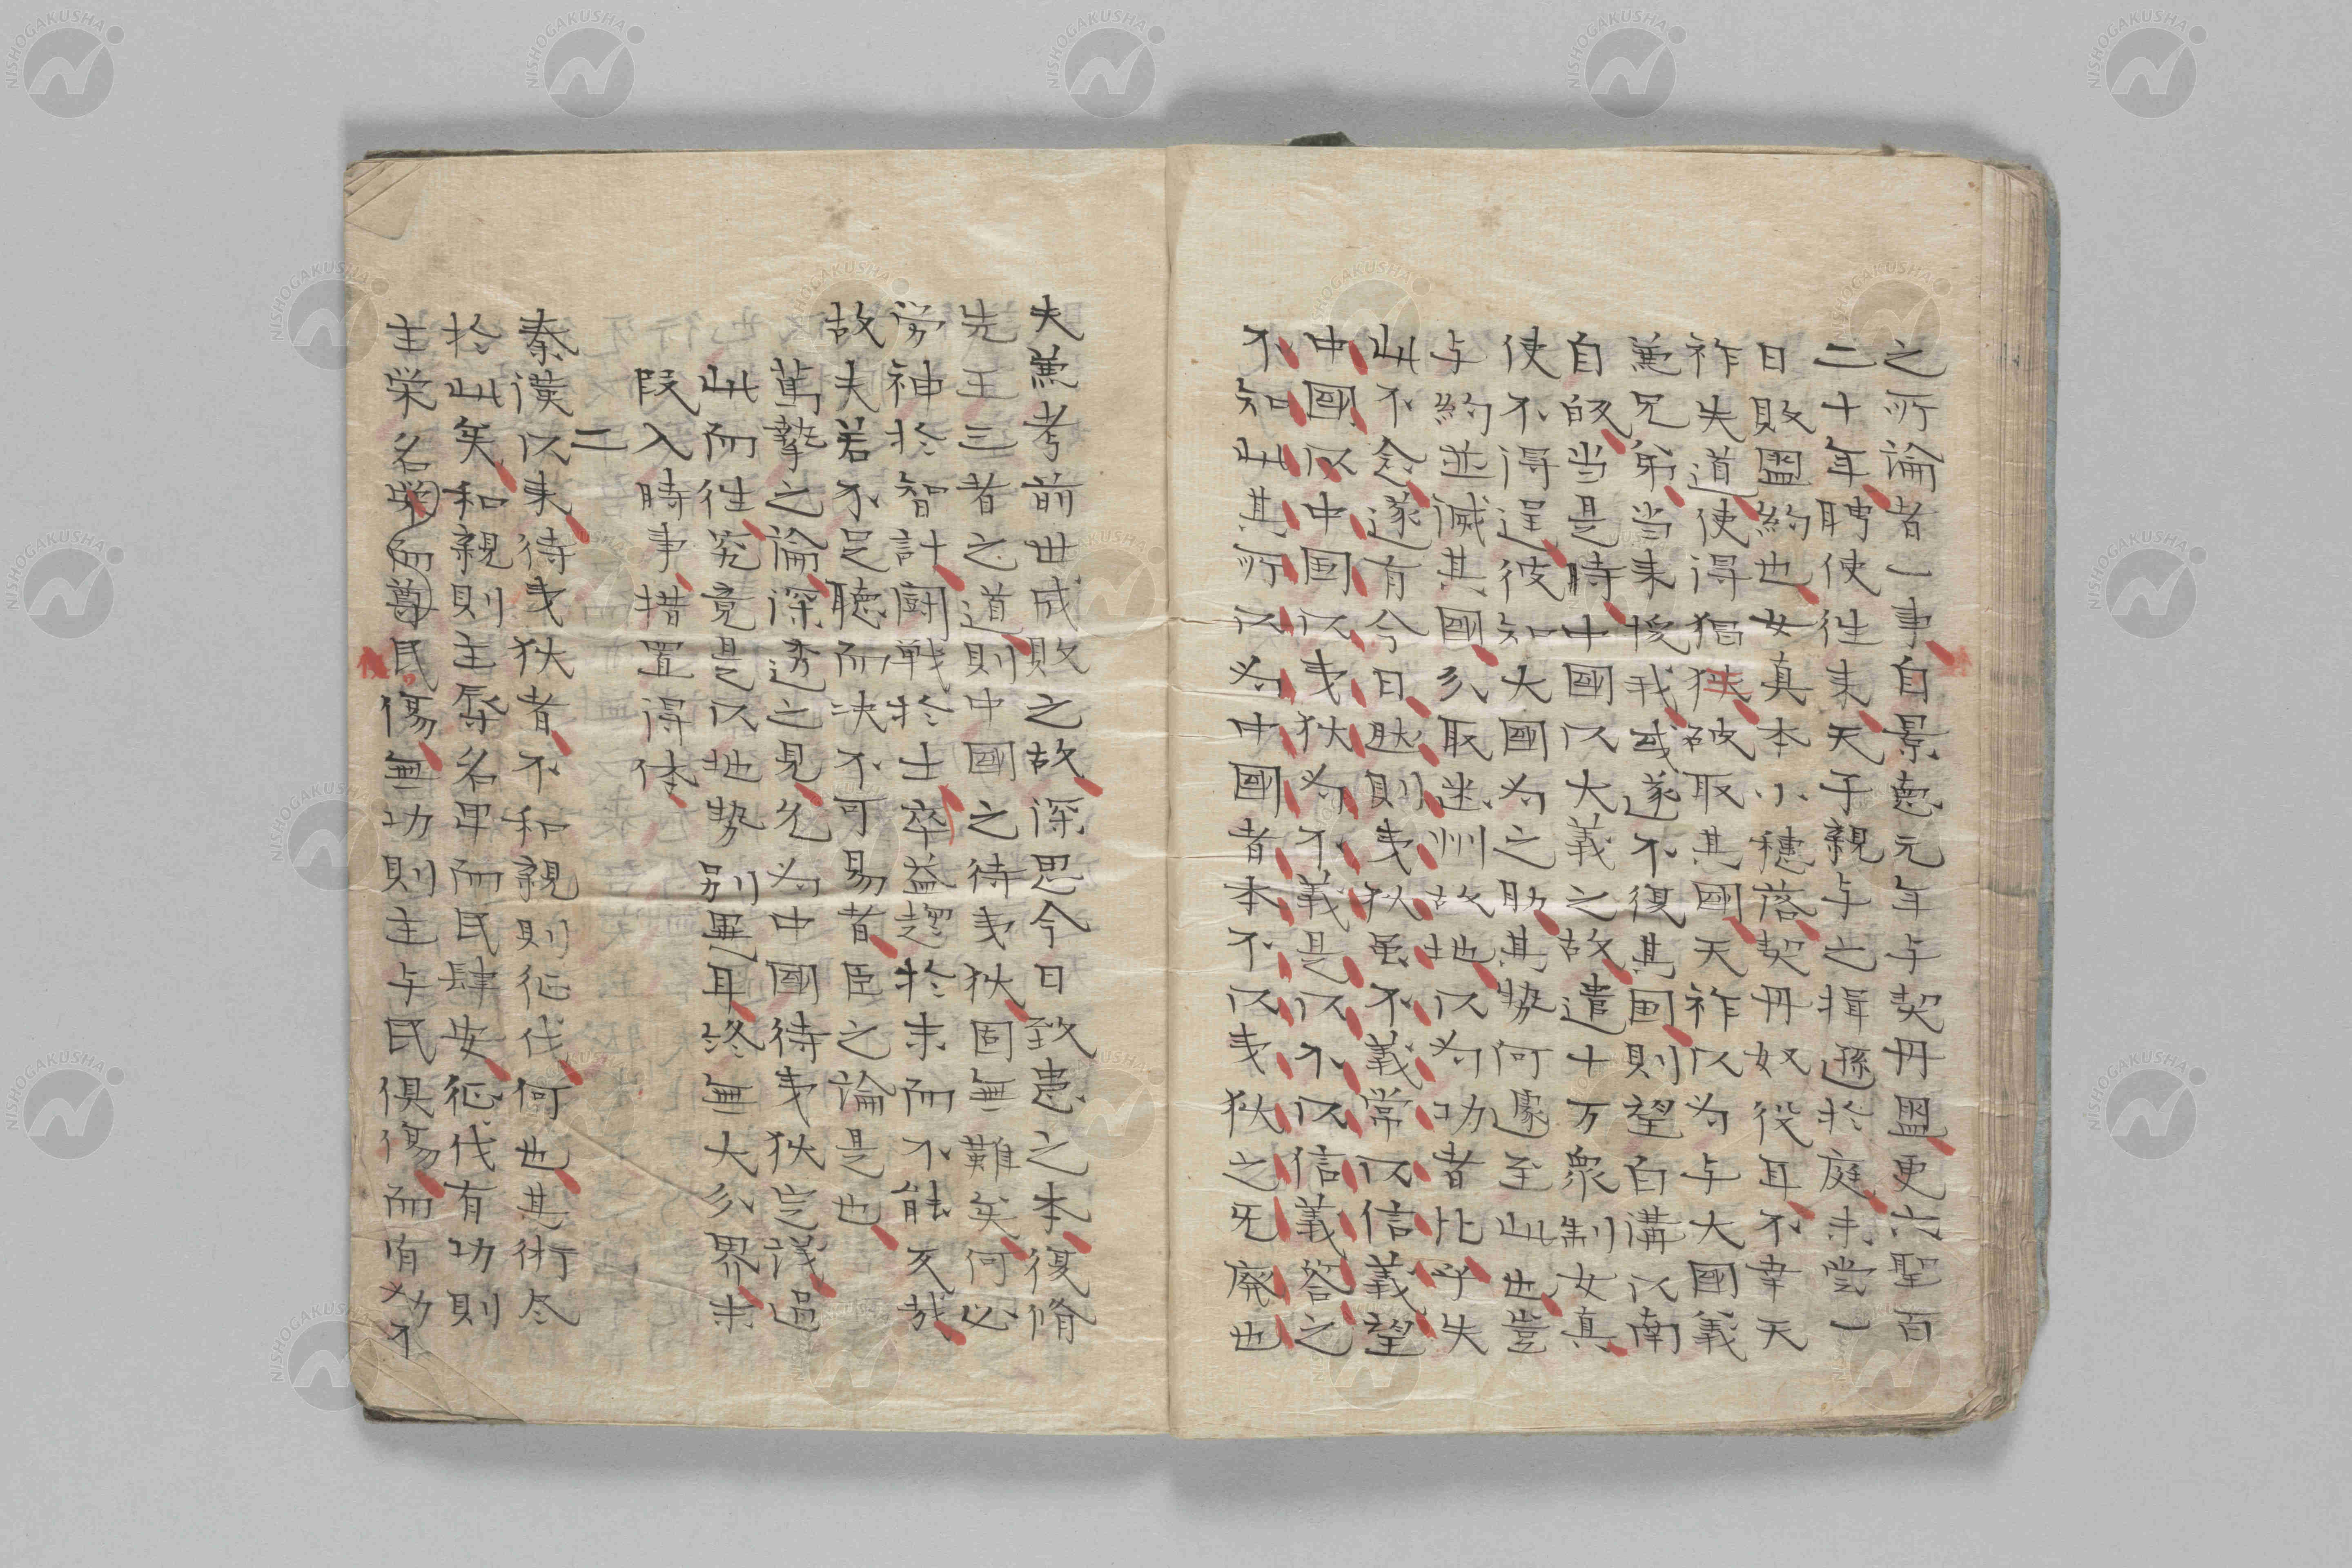 之所論者一事自景悳元年与契丹盟更六聖百
二十年聘使徃来天子親与之揖遜扵庭未嘗一
日敗盟約也女真本小種落契丹奴役耳不幸天
祚失道使得猖獗破取其國天祚以為与大國義
蕙兄弟当来援我或遂不復其国則望白溝以南
自飲当是時中國以大義之故遣十万衆制女真
使不得逞彼知大國為之助其勢何遽至此也豈
与約並滅其國分取幽州故地以為功者比乎失
此不念遂有今日肰則夷狄虽不義常以信義望
中國以中国以夷狄為不義是以不以信義答之
不知此其所以為中國者本不以夷狄之旡廃也
夫蕙考前世成敗之故深思今日致患之本復脩
先王三者之道則中國之待夷狄固無難矣何必
労神扵智計鬪戦扵士卒益趨扵末而不能反哉
故夫若不足聴而决不可易者臣之論是也
萬摯之論深透之見允為中國待夷狄定議過
此而徃究竟是以地勢別畢耳終無大分界未
段入時事措置得体
二
秦漢以来待夷狄者不和親則征伐何也其術尽
扵此矣和親則主辱名卑而民肆安征伐有功則
主栄名而尊民傷無功則主与民俱傷而有功不
NISHOGAKUSHA